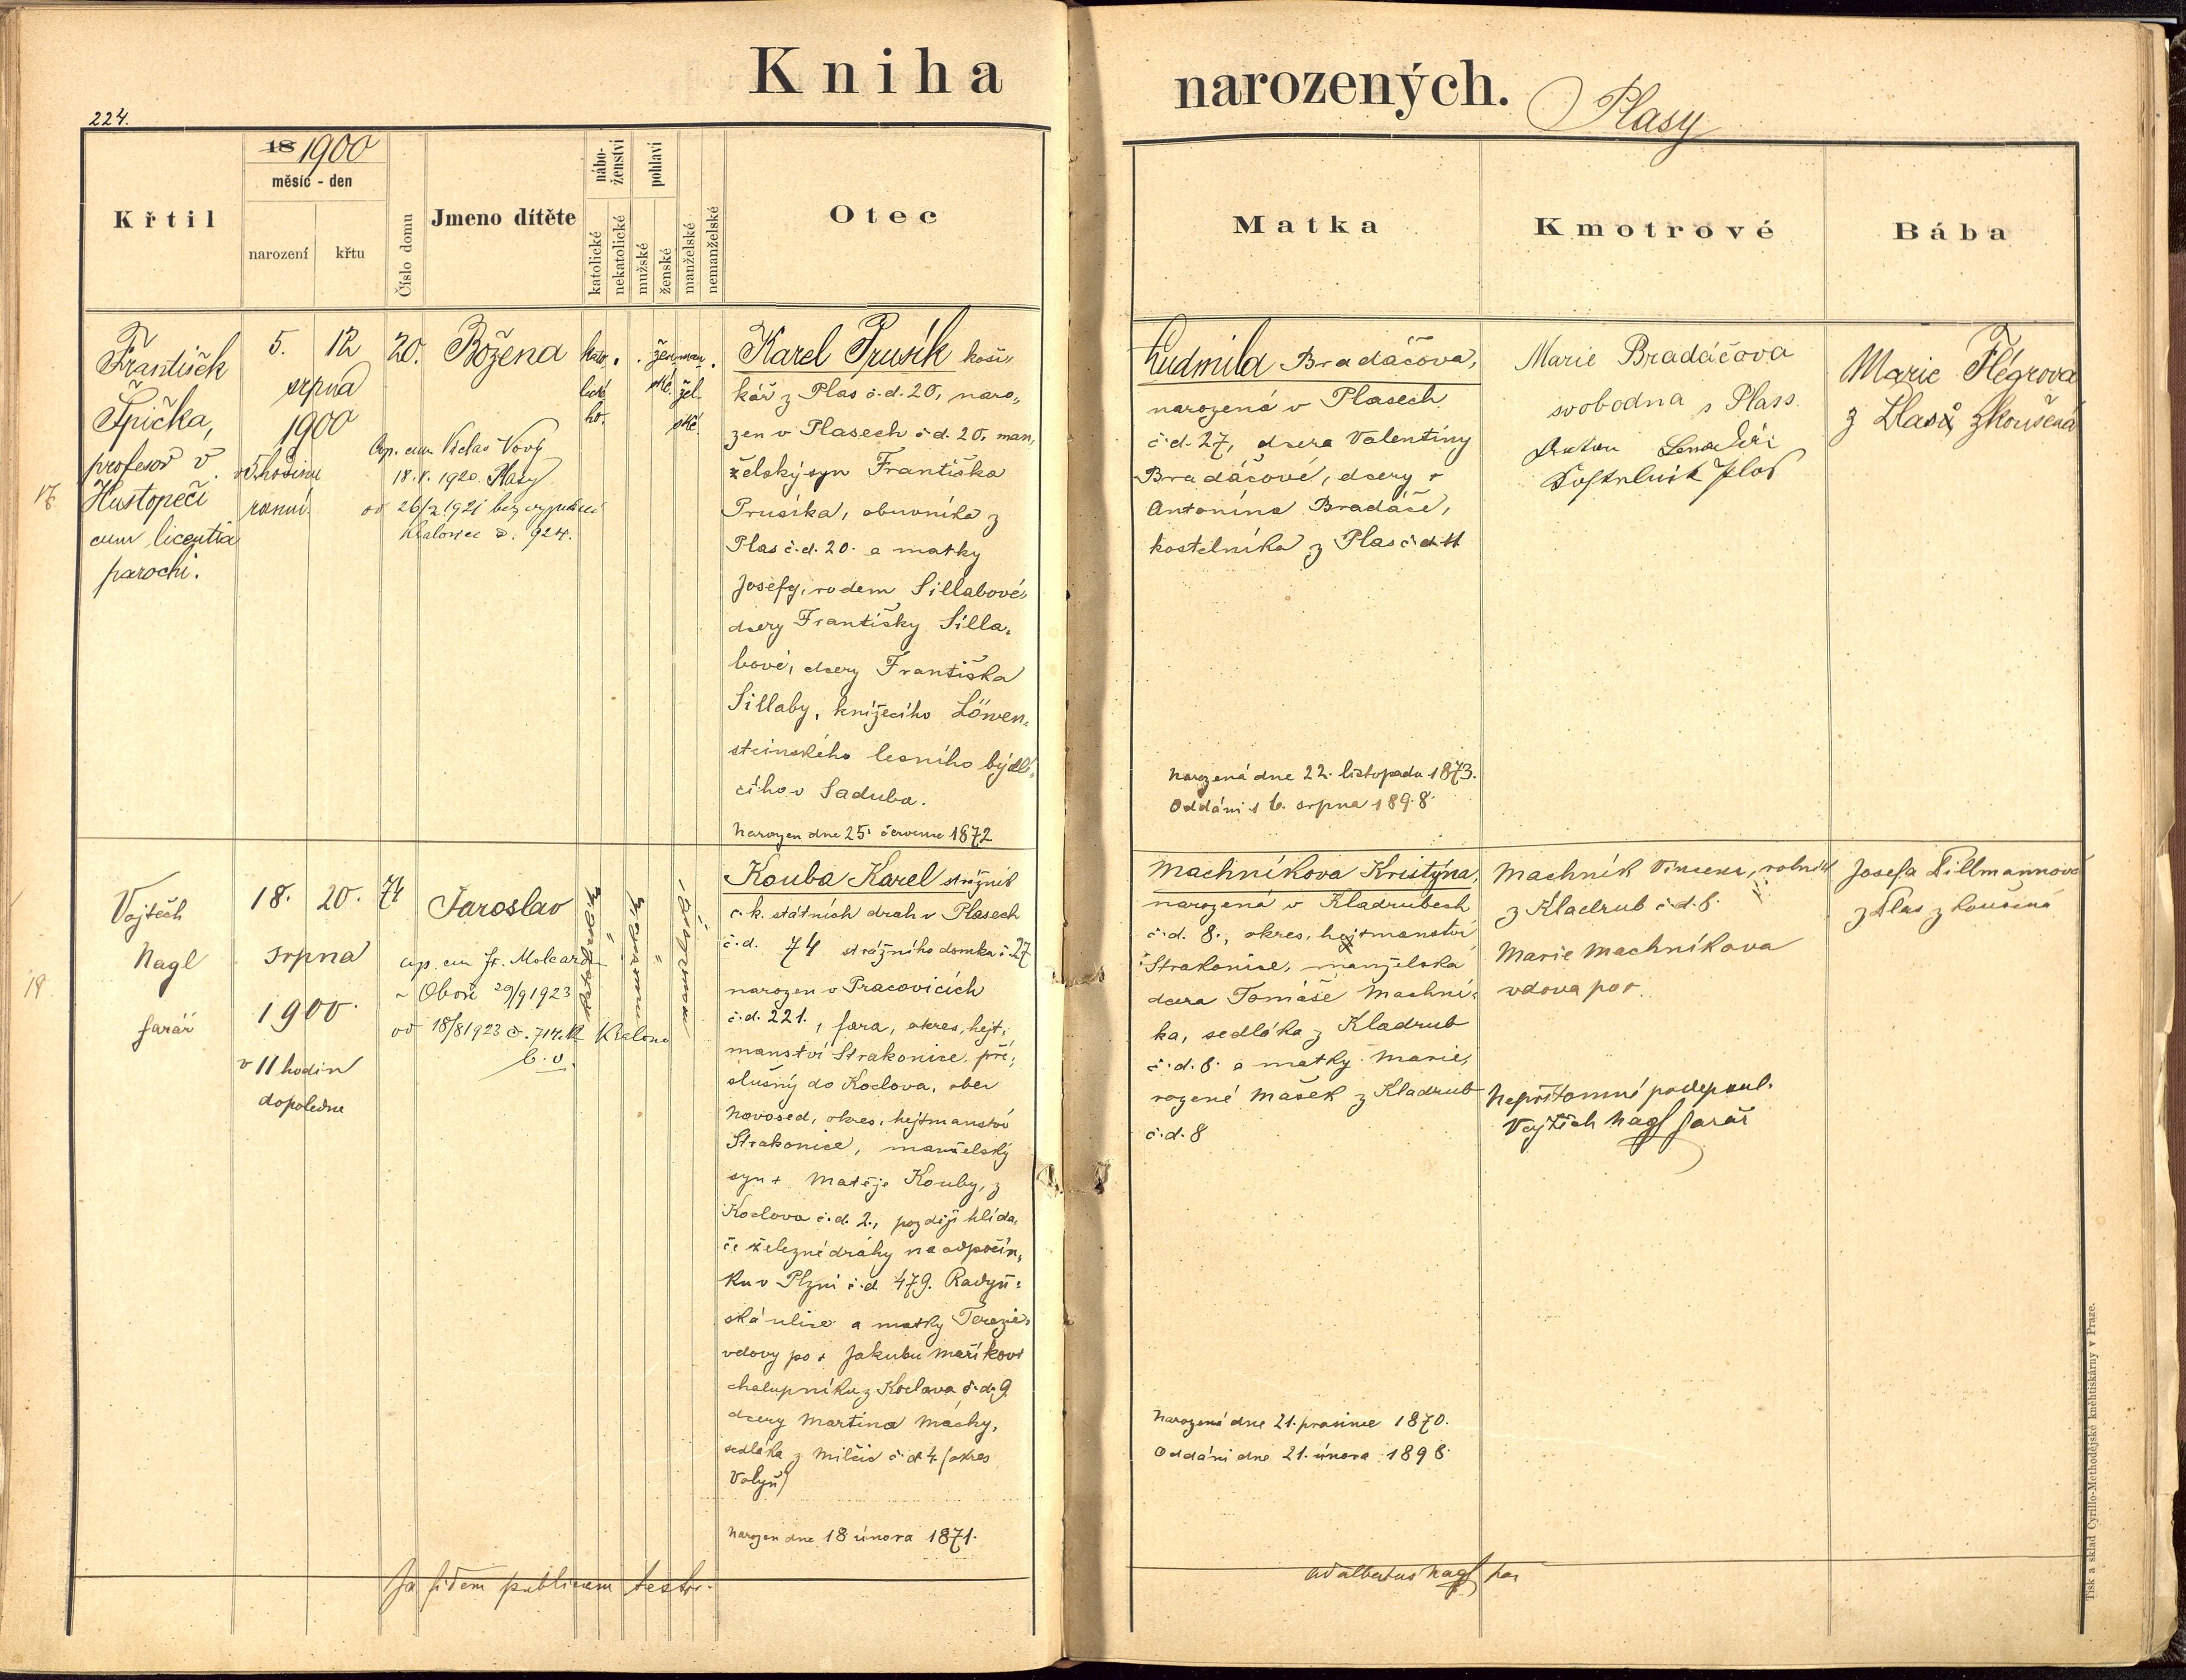 Kniha
narozených.
Plasy
224.
18 1900
měsíc - den
Křtil
narození
křtu
Číslo domu
Jmeno dítěte
nábo-
ženství
katolické
nekatolické
pohlaví
mužské
ženské
manželské
nemanželské
Otec
Matka
Kmotrové
Bába
17
František
Špička,
profesor v
Hustopeči
cum licentia
parochi.
5. 12
srpna
1900
v 5 hodinu
ranní.
20.
Božena
Cop. cum Václav Nový
18. V. 1920. Plasy
26/2 1921 bez vyznání
Kralovice č. 924.
kato
lické
ho.
žen
ské
man
žel
ské
Karel Prusík koši
kář z Plas č.d. 20, naro,
zen v Plasech č d. 20, man,
želský syn Františka
Prusíka, obuvníka z
Plas č.d. 20. a matky
Josefy, rodem Sillabové,
dcery Františky Silla,
bové, dcery Františka
Sillaby, knížecího Löwen,
steinského lesního bydlí,
cího v Saduba.
Narozen dne 25. července 1872
Ludmila Bradáčova,
narozená v Plasech
č.d. 27, dcera Valentiny
Bradáčové, dcery +
Antonína Bradáče,
kostelníka z Plas č d 11
Narozená dne 22. listopadu 1873.
Oddáni 16. srpna 1898.
Marie Bradáčova
svobodna s Plass.
Anton
Marie Flégrova
z Plas zkoušená
18
Vojtěch
Nagl
farář
18. 20.
srpna
1900.
v 11 hodin
dopoledne
74
Jaroslav
cop. cum Fr. Molcar
Oboře 29/9 1923
18/8 1923 č. 714. Kralovic
b.v.
Kouba Karel strážník
c. k. státních drah v Plasech
č.d. 74 strážního domka č 27
narozen v Pracovicích
č.d. 221., fara, okres, hejt,
manství Strakonice, pří,
slušný do Koclova, obec
Novosed, okres, hejtmanství
Strakonice, manželský
syn + Matěje Kouby, z
Koclova č.d. 2., později hlída,
če železné dráhy na odpočin,
ku v Plzni č.d. 479. Radyň,
ská ulice a matky Terezie,
vdovy po + Jakubu Maříkovi
chalupníku z Koclova č.d. 9
dcery Martina Máchy,
sedláka z Milčic č.d 4. (okres
Volyň)
Narozen dne 18 února 1871.
Machníkova Kristýna,
narozená v Kladrubech
č.d. 8., okres, hejtmanství
Strakonice, manželska
dcera Tomáše Machní,
ka, sedláka z Kladrub
č.d. 8. a matky Marie,
rozené Mašek z Kladrub
č.d. 8
Narozená dne 21. prosince 1870.
Oddáni dne 21. února 1898
Machník Vincenc, rolník
z Kladrub č.d. 8.
Marie Machníkova
vdova po +.
Nepřítomné podepsal.
Vojtěch Nagl farář
Josefa Tillmannova
z Plas zkoušená
In fidem publicam testor.
Adalbertus Nagl par
Tisk a sklad Cyrillo-Methodějské knihtiskárny v Praze.